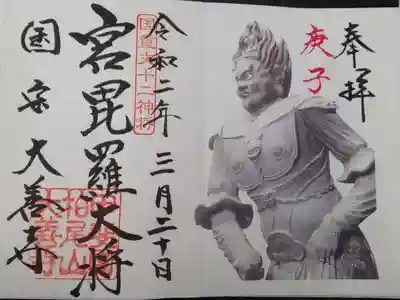 奉拝
庚子
令和二年三月二十日
国重文十二神将
宮毘羅大将
国宗大善寺
柏尾山
大善寺